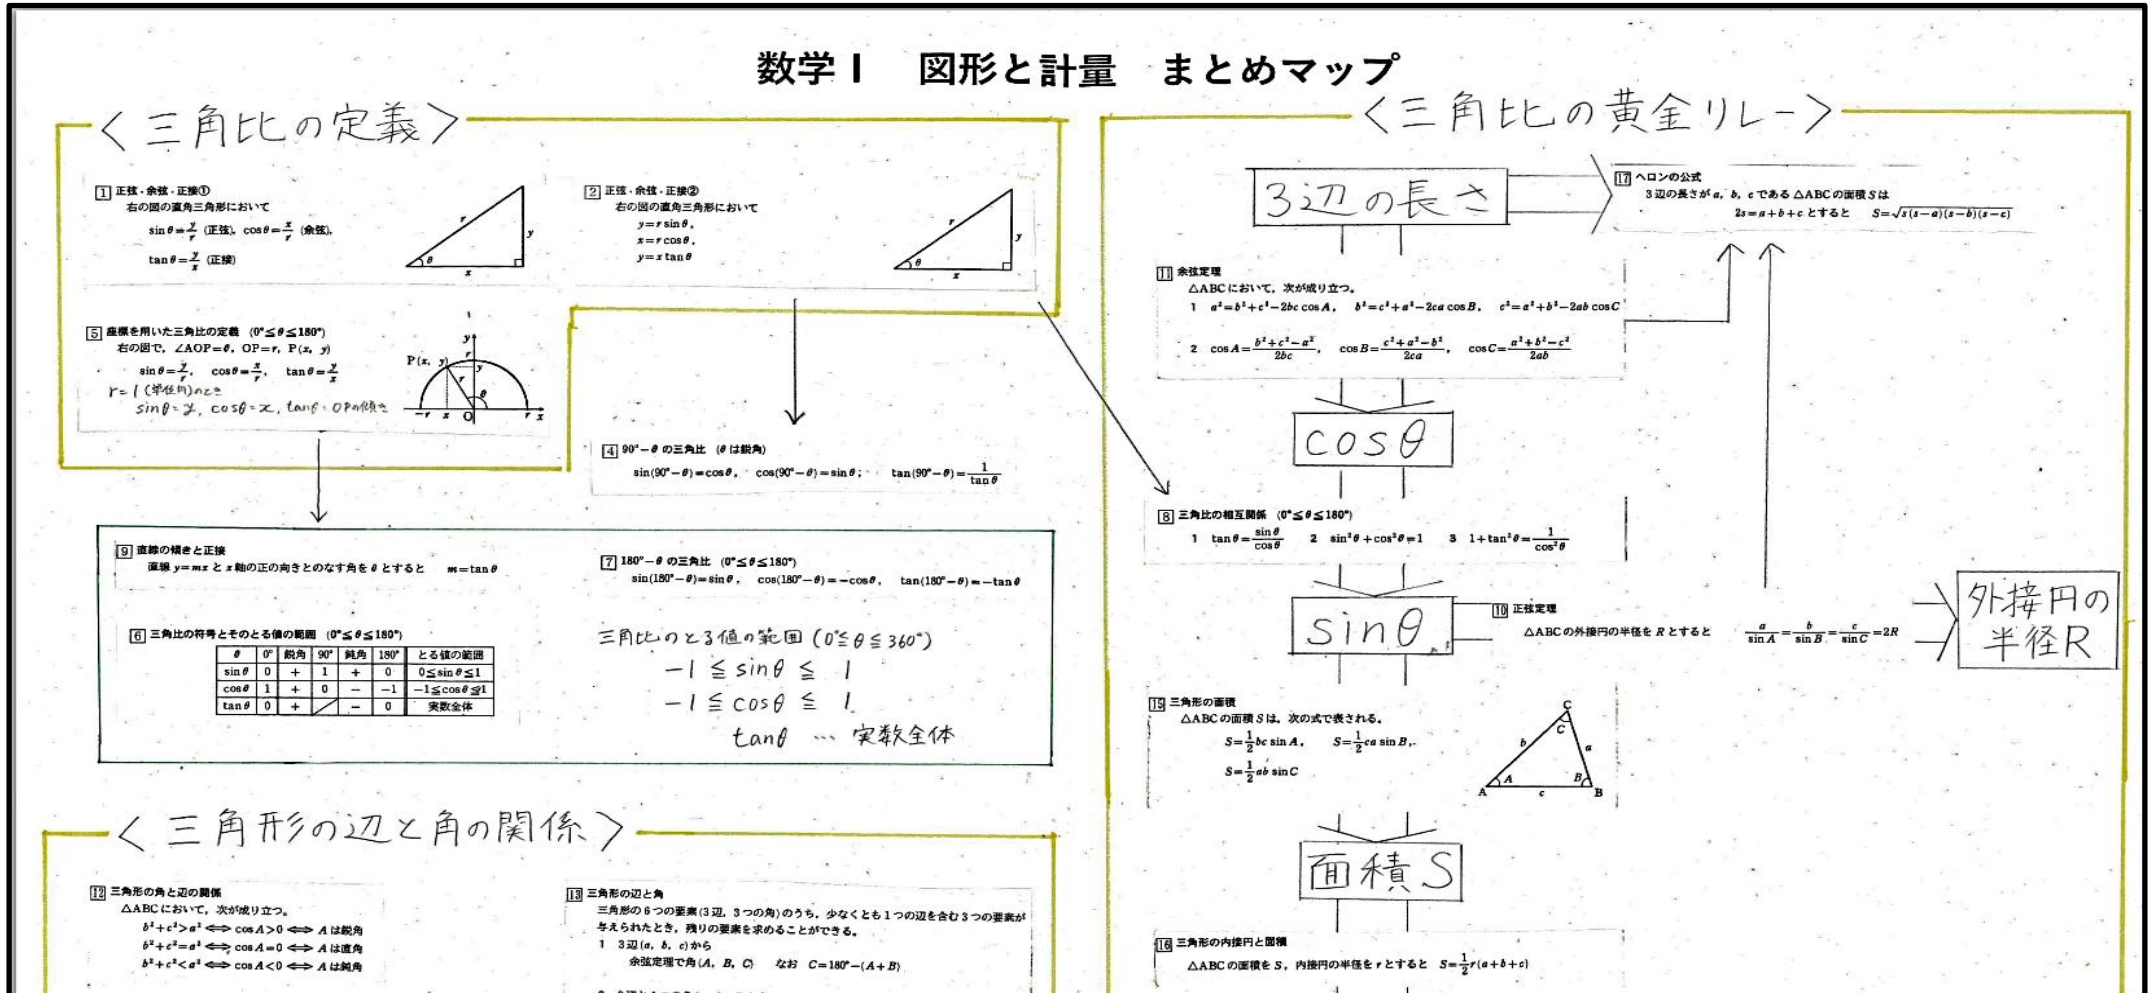 数学Ⅰ 図形と計量 まとめマップ
<三角比の定義>
1 正弦・余弦・正接①
右の図の直角三角形において
sinθ=y/r (正弦), cosθ=x/r (余弦),
tanθ=y/x (正接)
r
y
θ
x
2 正弦・余弦・正接②
右の図の直角三角形において
y=r sinθ,
x=r cosθ,
y=x tanθ
r
y
θ
x
5 座標を用いた三角比の定義 (0°≦θ≦180°)
右の図で, ∠AOP=θ, OP=r, P(x, y)
sinθ=y/r, cosθ=x/r, tanθ=y/x
r=1(単位円)のとき
sinθ=y, cosθ=x, tanθ=OPの傾き
y
r
P(x, y)
y
r
θ
-r x O r x
4 90°-θ の三角比 (θ は鋭角)
sin(90°-θ)=cosθ, cos(90°-θ)=sinθ, tan(90°-θ)=1/tanθ
9 直線の傾きと正接
直線 y=mx と x 軸の正の向きとのなす角を θ とすると m=tanθ
7 180°-θ の三角比 (0°≦θ≦180°)
sin(180°-θ)=sinθ, cos(180°-θ)=-cosθ, tan(180°-θ)=-tanθ
6 三角比の符号とそのとる値の範囲 (0°≦θ≦180°)
θ 0° 鋭角 90° 鈍角 180° とる値の範囲
sinθ 0 + 1 + 0 0≦sinθ≦1
cosθ 1 + 0 - -1 -1≦cosθ≦1
tanθ 0 + - 0 実数全体
三角比のとる値の範囲(0°≦θ≦360°)
-1≦sinθ≦1
-1≦cosθ≦1
tanθ … 実数全体
<三角形の辺と角の関係>
12 三角形の角と辺の関係
△ABCにおいて, 次が成り立つ。
b²+c²>a² ⟺ cosA>0 ⟺ A は鋭角
b²+c²=a² ⟺ cosA=0 ⟺ A は直角
b²+c²<a² ⟺ cosA<0 ⟺ A は鈍角
13 三角形の辺と角
三角形の6つの要素(3辺, 3つの角)のうち, 少なくとも1つの辺を含む3つの要素が
与えられたとき, 残りの要素を求めることができる。
1 3辺(a, b, c)から
余弦定理で角(A, B, C) なお C=180°-(A+B)
<三角比の黄金リレー>
3辺の長さ
17 ヘロンの公式
3辺の長さが a, b, c である △ABCの面積 S は
2s=a+b+c とすると S=√s(s-a)(s-b)(s-c)
11 余弦定理
△ABCにおいて, 次が成り立つ。
1 a²=b²+c²-2bc cosA, b²=c²+a²-2ca cosB, c²=a²+b²-2ab cosC
2 cosA=(b²+c²-a²)/2bc, cosB=(c²+a²-b²)/2ca, cosC=(a²+b²-c²)/2ab
cosθ
8 三角比の相互関係 (0°≦θ≦180°)
1 tanθ=sinθ/cosθ 2 sin²θ+cos²θ=1 3 1+tan²θ=1/cos²θ
sinθ
10 正弦定理
△ABCの外接円の半径を R とすると a/sinA=b/sinB=c/sinC=2R
外接円の
半径R
15 三角形の面積
△ABCの面積 S は, 次の式で表される。
S=1/2 bc sinA, S=1/2 ca sinB,
S=1/2 ab sinC
C
C
b
a
A B
A c B
面積S
16 三角形の内接円と面積
△ABCの面積を S, 内接円の半径を r とすると S=1/2 r(a+b+c)